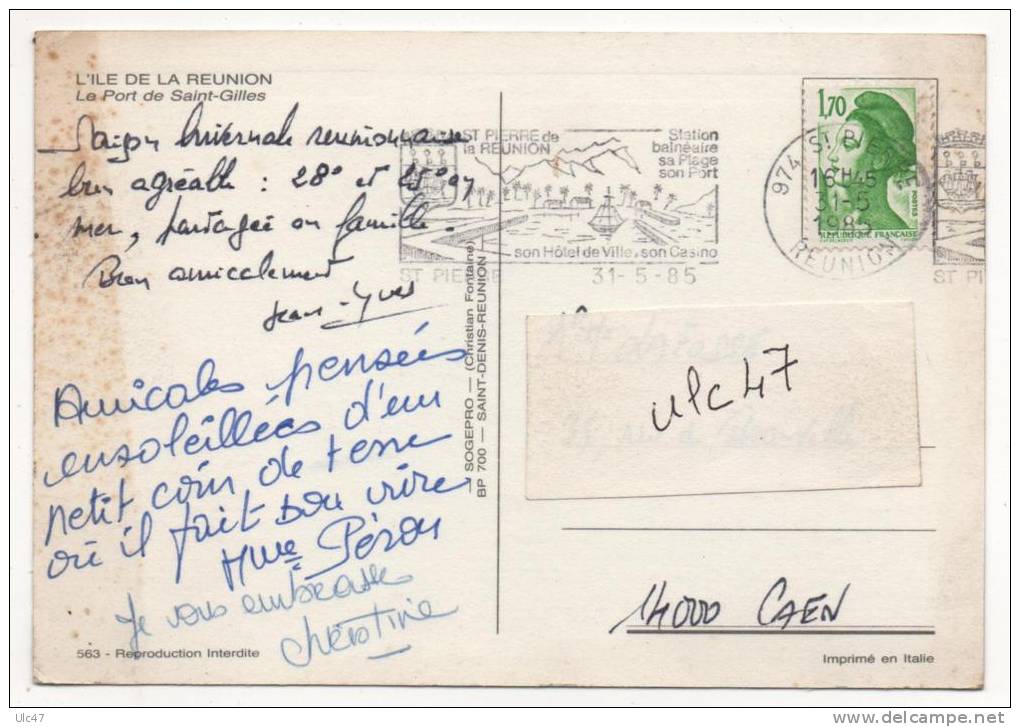 L'ILE DE LA REUNION
Le Port de Saint-Gilles
Saison hivernale réunionnaise
bien agréable : 28° et 25° en
mer, partagée en famille.
Bien amicalement
Jean-Yves
Amicales pensées
ensoleillées d'un
petit coin de terre
où il fait bon vivre
Mme Péron
Je vous embrasse
Christine
563 - Reproduction Interdite
SOGEPRO — (Christian Fontaine)
BP 700 — SAINT-DENIS-REUNION
ST PIERRE de
la REUNION
Station
balnéaire
sa Plage
son Port
son Hôtel de Ville, son Casino
ST PIERRE
31-5-85
1,70
POSTES
RÉPUBLIQUE FRANÇAISE
974
16H45
31-5
1985
REUNION
ST PI
ulc47
14000 CAEN
Imprimé en Italie
Ulc47
delcampe.net